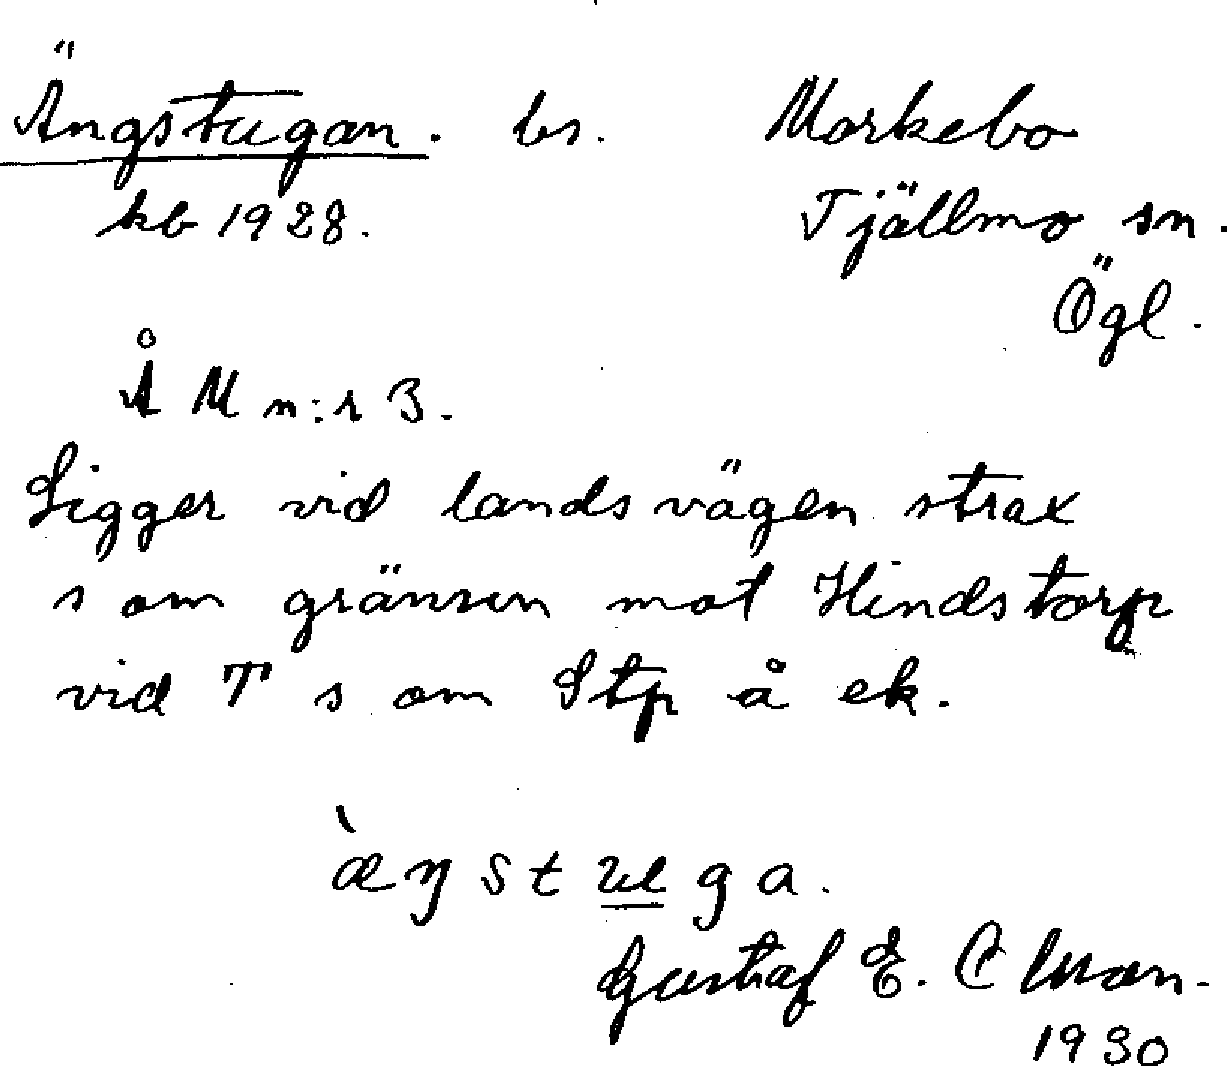 Ängstugan. bs. Morkebo
kb 1928. Tjällmo sn.
Ögl.
Å M n:r 3.
Ligger vid landsvägen strax
s om gränsen mot Hindstorp
vid T s om Stp å ek.
æ̀ŋstuga.
Gustaf E. C
1930